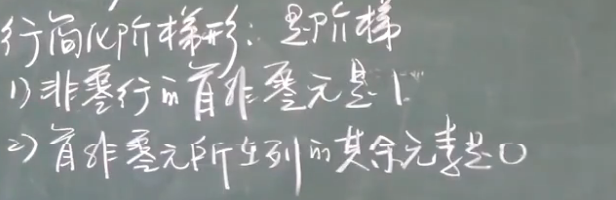 行简化阶梯形：是阶梯
1) 非零行的首非零元是1.
2) 首非零元所在列的其余元素是0